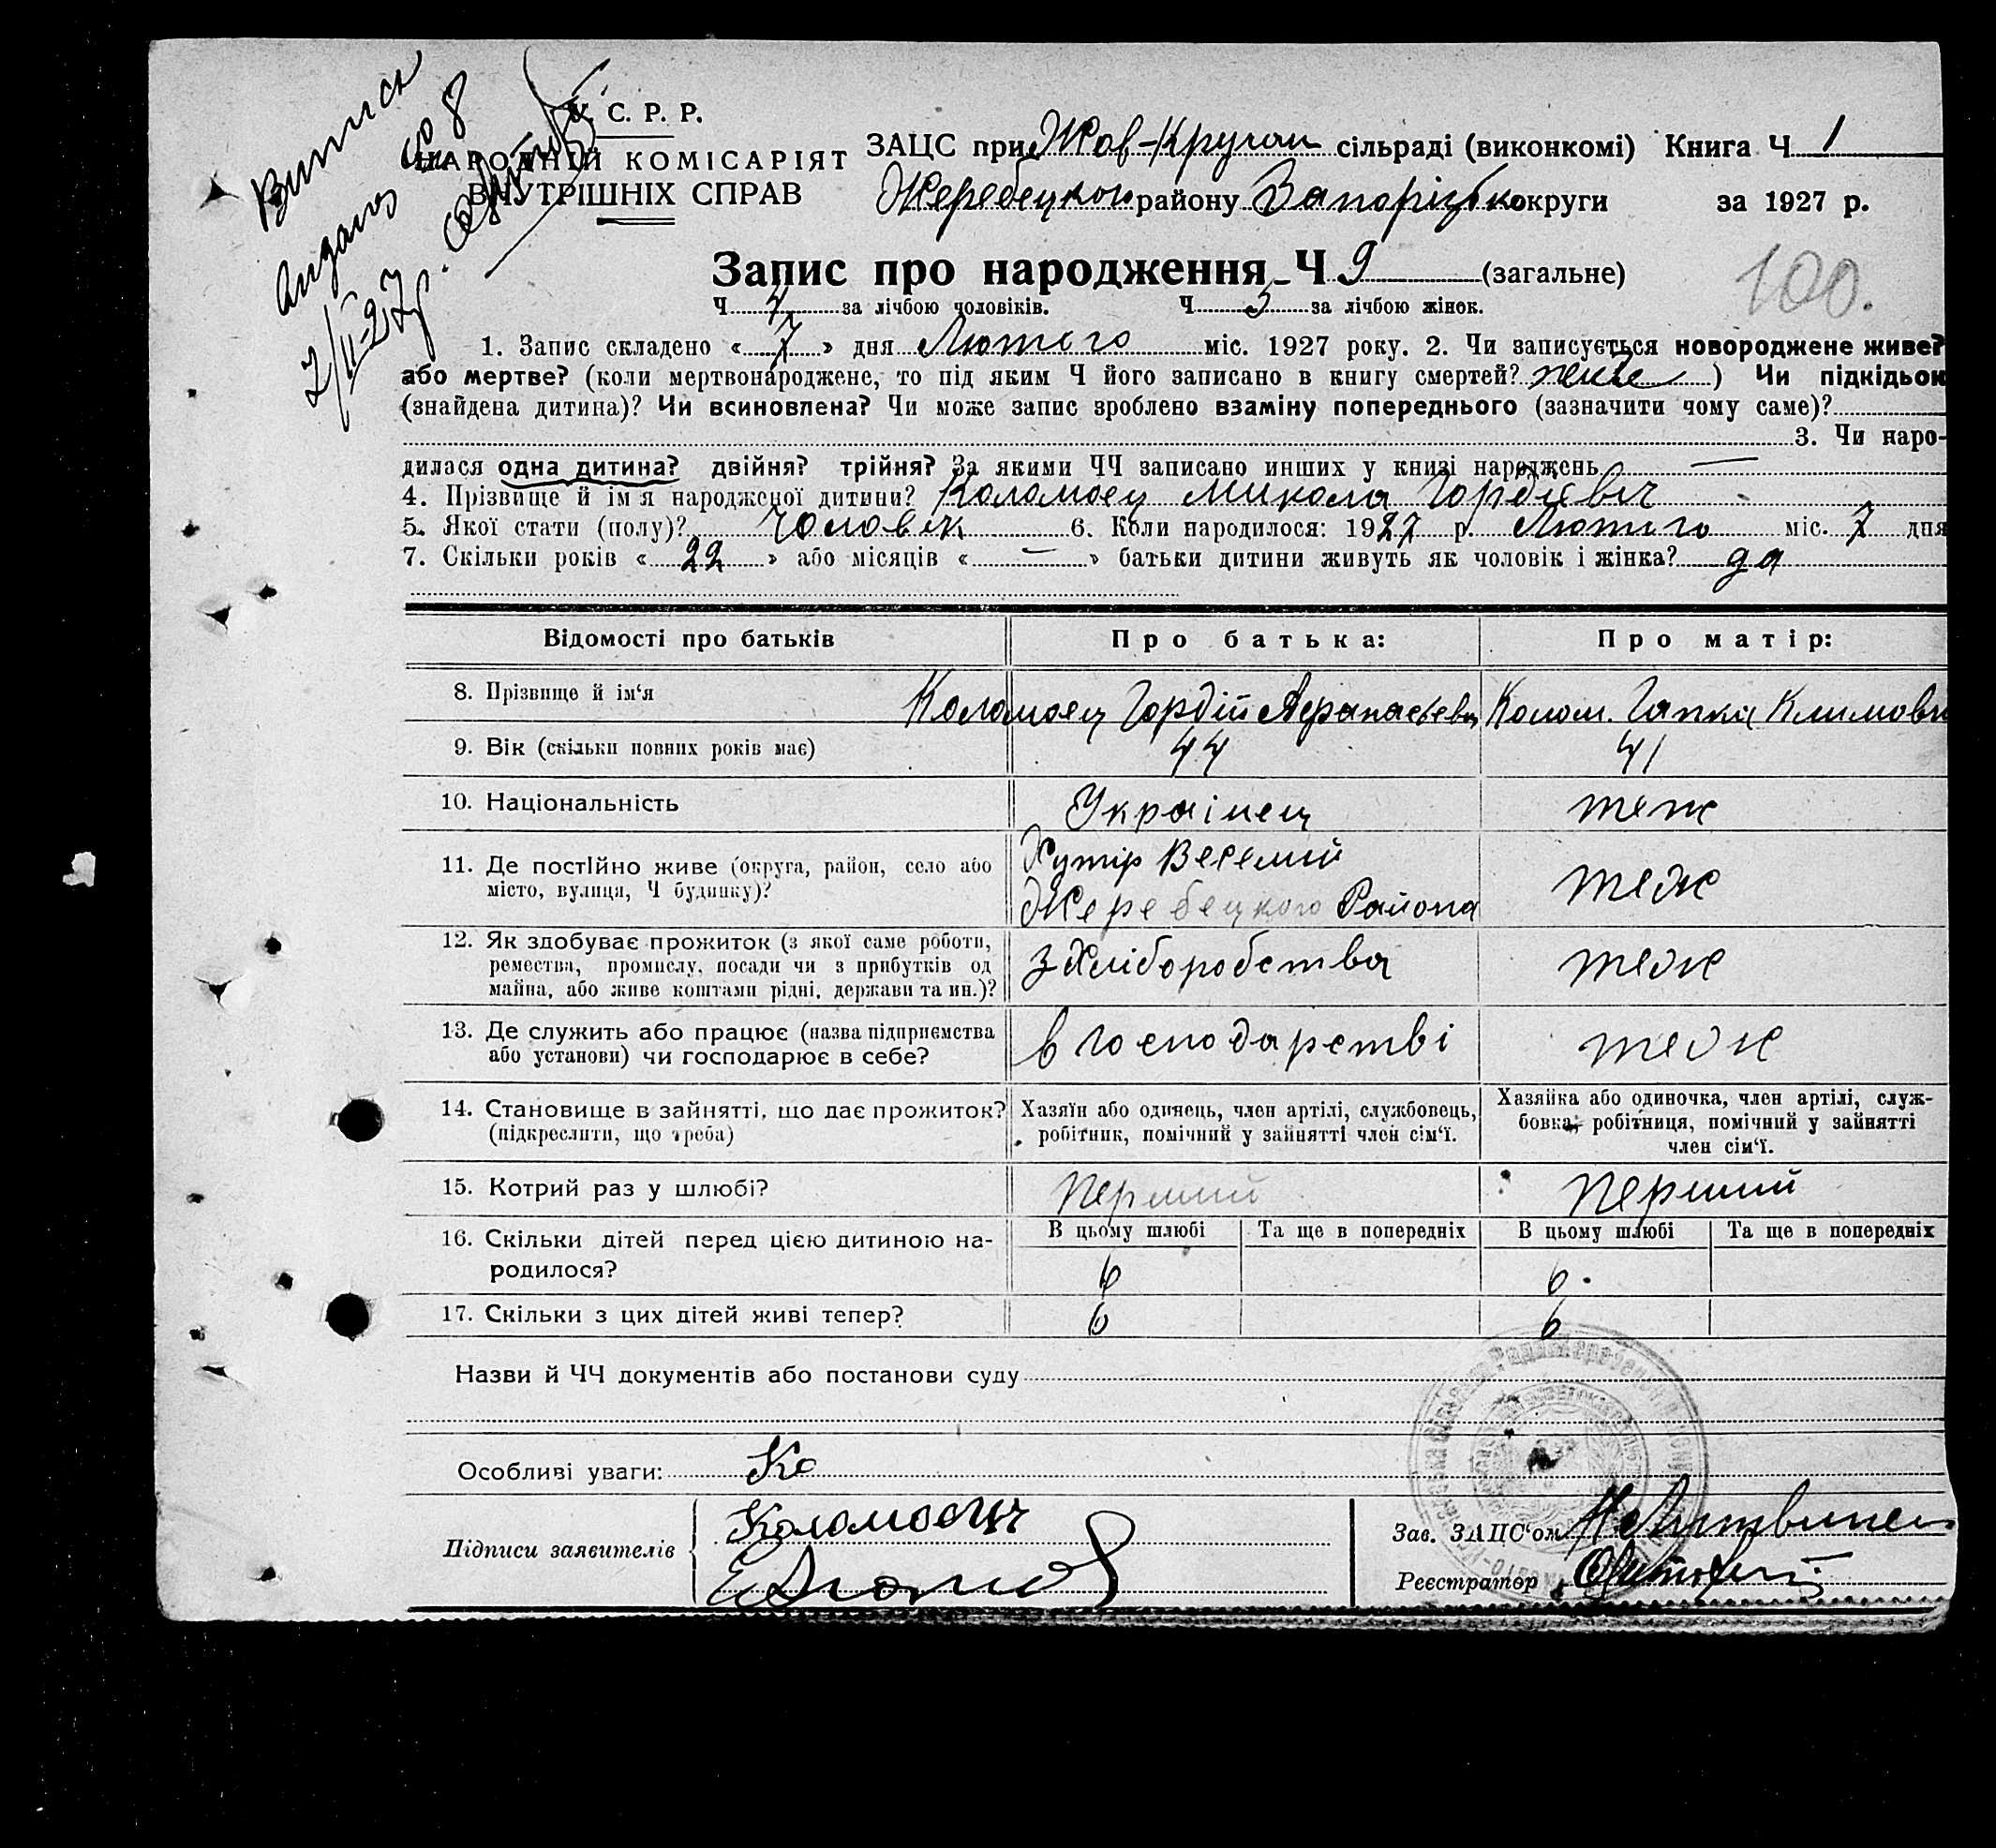 Випись
видано
№ 8
7/II-27р.
У. С. Р. Р.
НАРОДНІЙ КОМІСАРІЯТ
ВНУТРІШНІХ СПРАВ
ЗАЦС при Жов-Кругап сільраді (виконкомі) Книга Ч 1
Жеребецкого району Запоріцької округи за 1927 р.
Запис про народження Ч 9 (загальне)
100.
Ч 4 за лічбою чоловіків. Ч 5 за лічбою жінок.
1. Запис складено « 7 » дня Лютого міс. 1927 року. 2. Чи записується новороджене живе?
або мертве? (коли мертвонароджене, то під яким Ч його записано в книгу смертей? живе ) Чи підкідьок
(знайдена дитина)? Чи всиновлена? Чи може запис зроблено взаміну попереднього (зазначити чому саме)?
3. Чи наро-
дилася одна дитина? двійня? трійня? За якими ЧЧ записано инших у книзі народжень —
4. Прізвище й ім'я народженої дитини? Коломоец Микола Гордієвіч
5. Якої стати (полу)? Чоловек 6. Коли народилося: 1927 р. Лютого міс. 7 дня
7. Скільки років « 22 » або місяців « — » батьки дитини живуть як чоловік і жінка? да
Відомості про батьків Про батька: Про матір:
8. Прізвище й ім'я Коломоец Гордій Афанасьевич Колом. Гапка Климовн
9. Вік (скільки повних років має) 44 41
10. Національність Українец теж
11. Де постійно живе (округа, район, село або місто, вулиця, Ч будинку)? Хутір Веселий Жеребецкого Района теж
12. Як здобуває прожиток (з якої саме роботи, ремества, промислу, посади чи з прибутків од майна, або живе коштами рідні, держави та ин.)? з Хліборобства теж
13. Де служить або працює (назва підприємства або установи) чи господарює в себе? в господарстві теж
14. Становище в зайнятті, що дає прожиток? (підкреслити, що треба) Хазяїн або одинець, член артілі, службовець, робітник, помічний у зайнятті член сім'ї. Хазяйка або одиночка, член артілі, служ-
бовка, робітниця, помічний у зайнятті
член сім'ї.
15. Котрий раз у шлюбі? перший перший
16. Скільки дітей перед цією дитиною на-
родилося? В цьому шлюбі Та ще в попередніх В цьому шлюбі Та ще в попередніх
6 6
17. Скільки з цих дітей живі тепер? 6 6
Назви й ЧЧ документів або постанови суду
Особливі уваги: Ко
Підписи заявителів Коломоєць
Зав. ЗАЦС'ом
Реєстратор